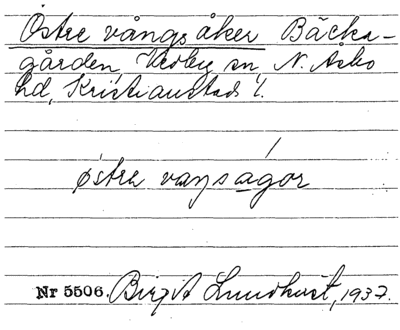 Östre vångs åker Bäcka-
gården, Vedby sn, N. Åsbo
hd, Kristianstads l.
østra vaŋsågor
Nr 5506. Birgit Lundkvist, 1937.